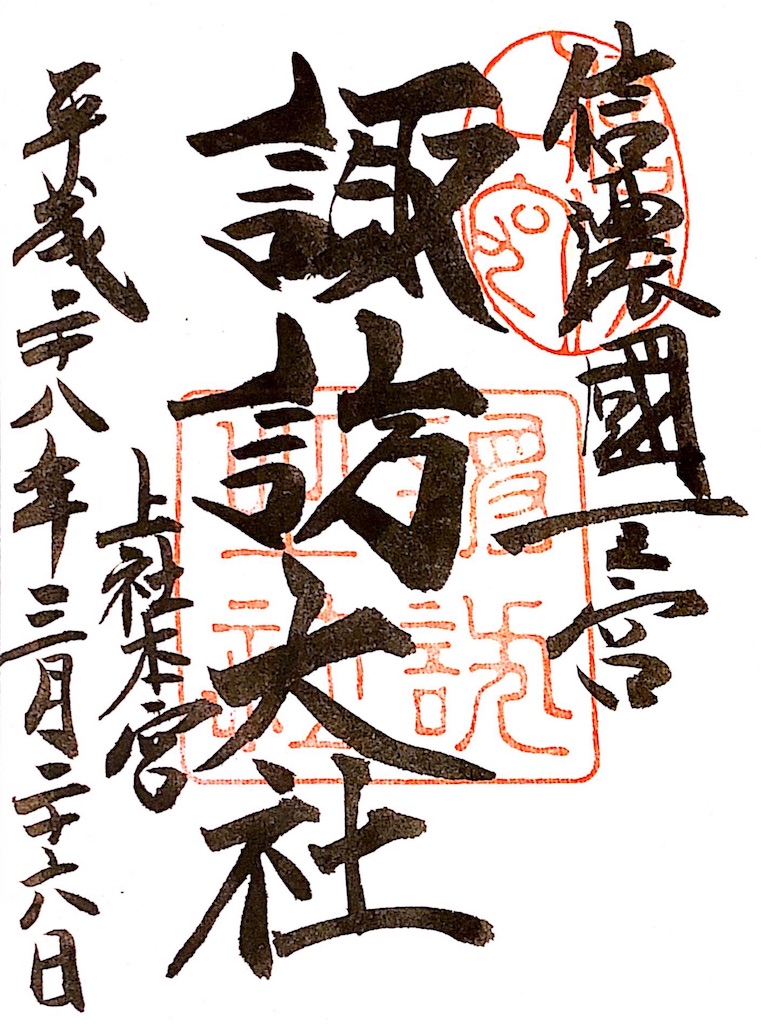 信濃國一之宮
諏訪大社
上社本宮
平成二十八年三月二十六日